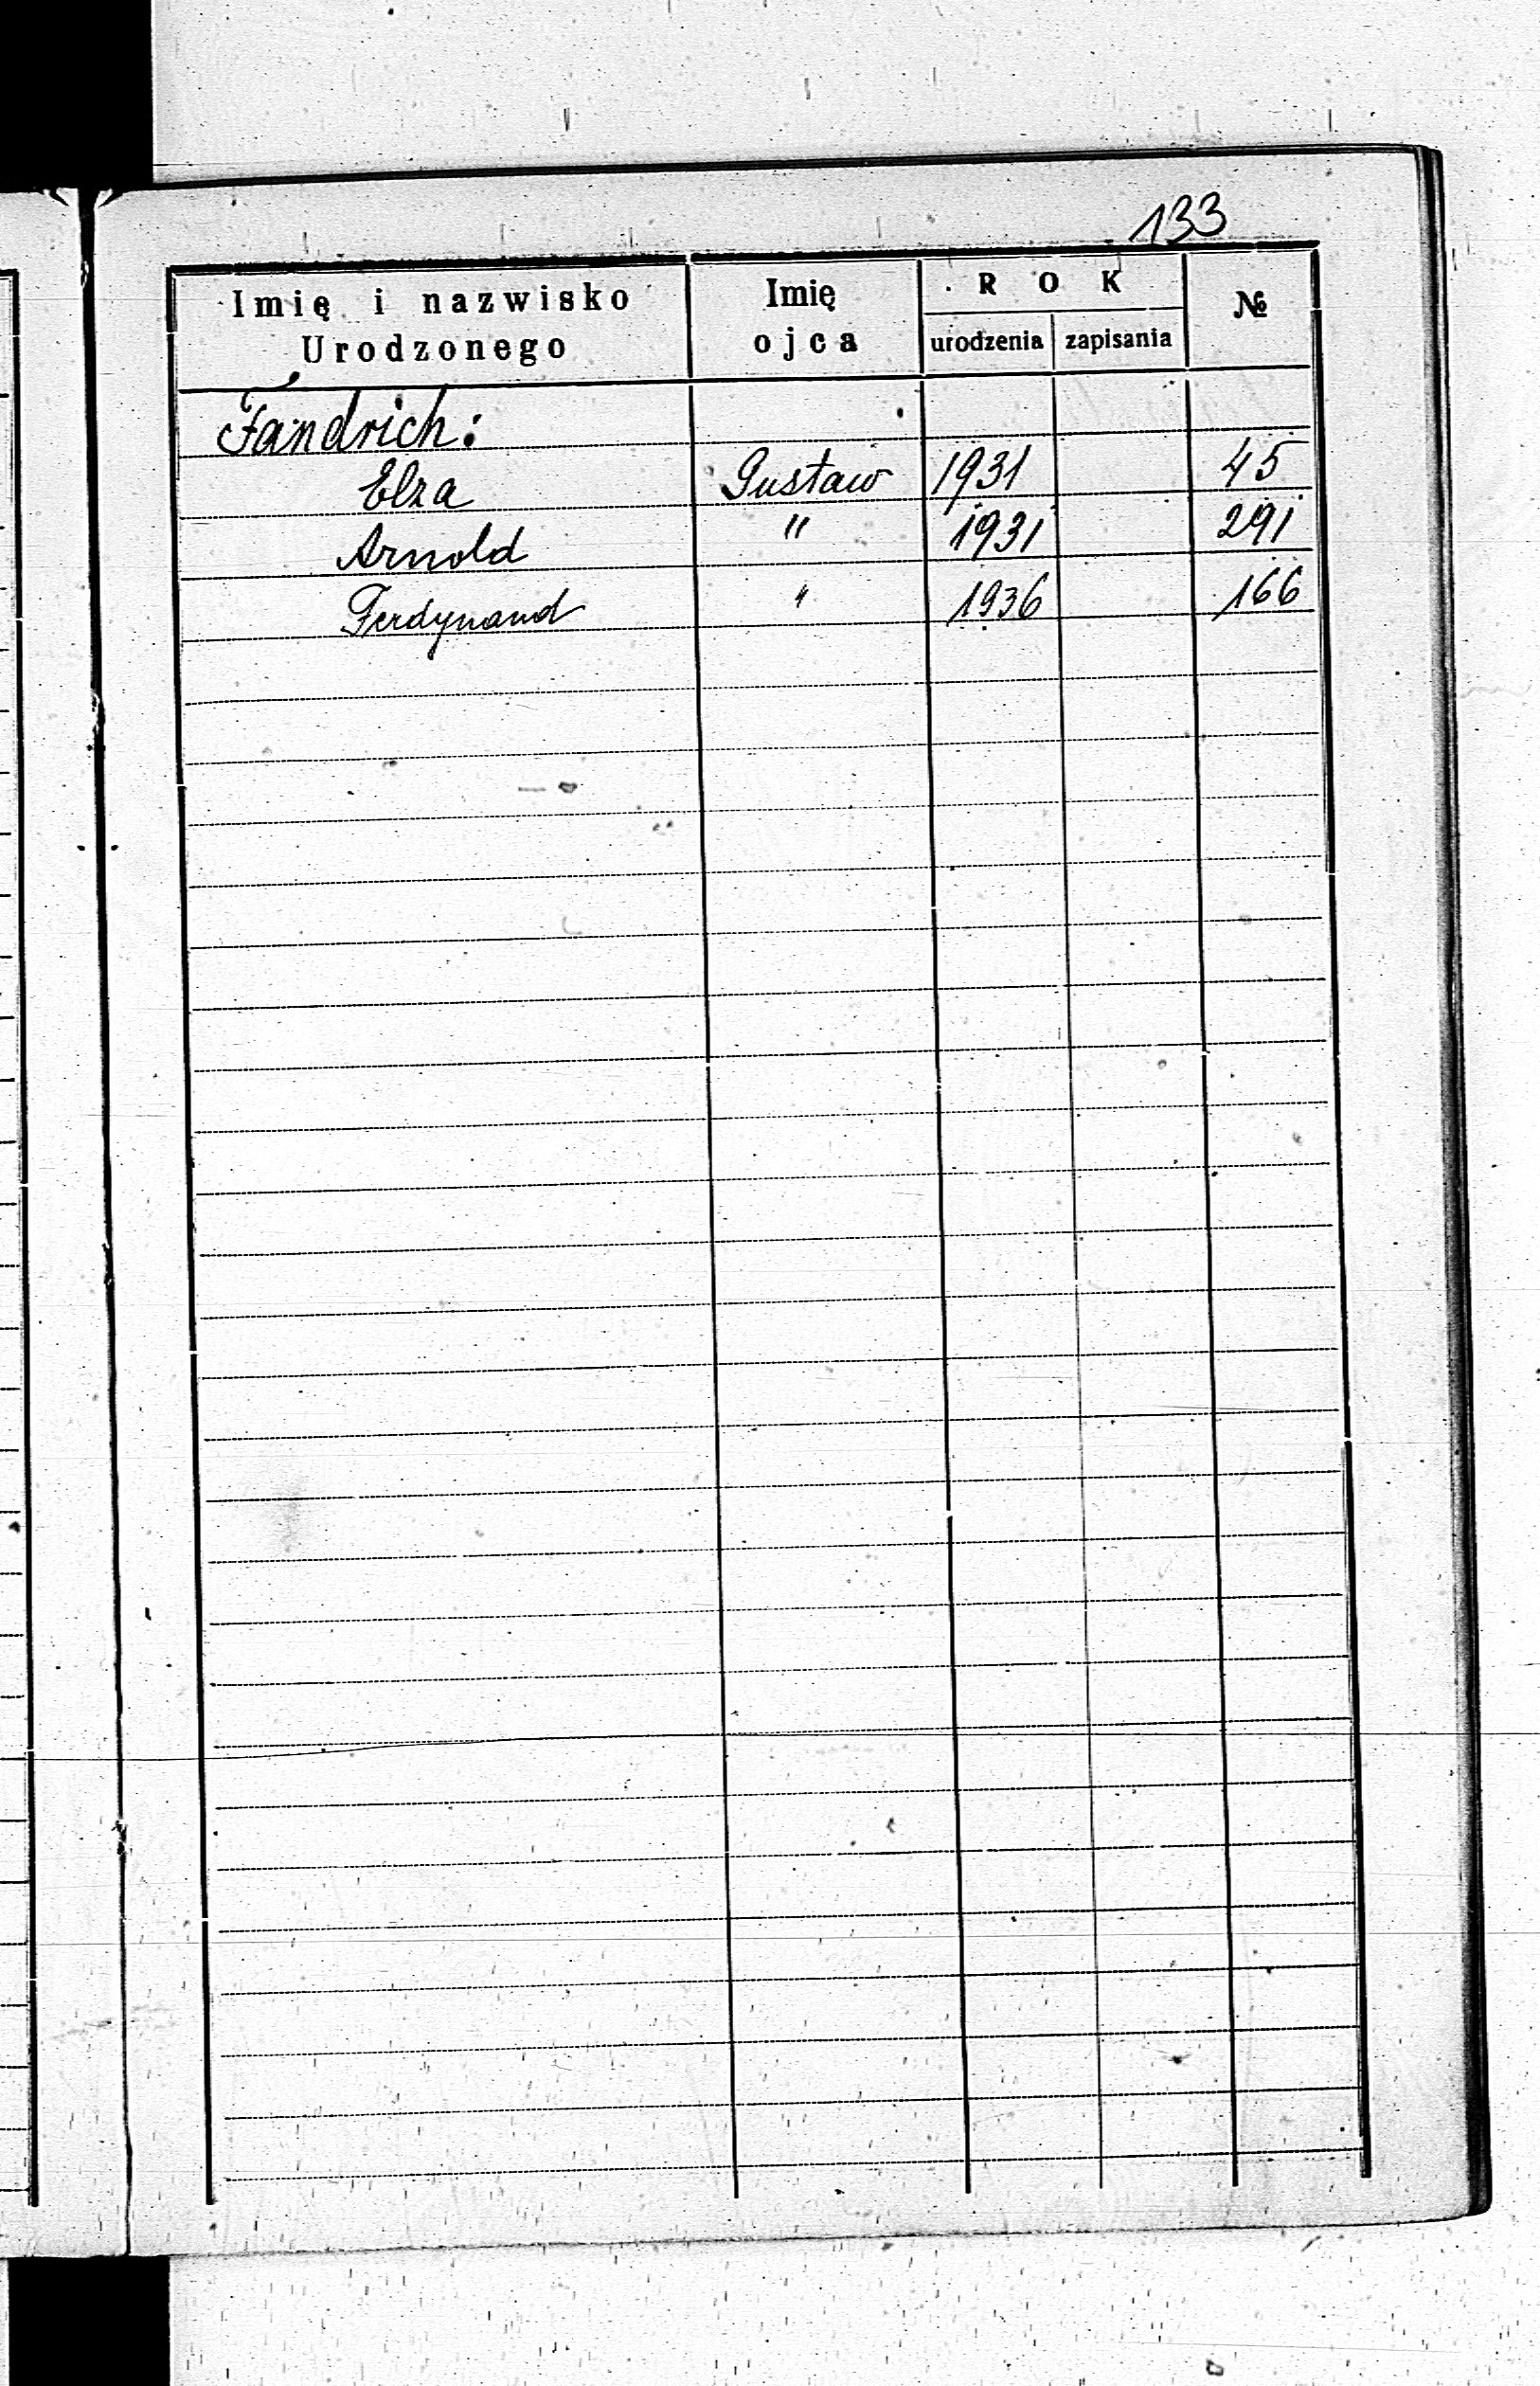 133
Imię i nazwisko Urodzonego Imię ojca ROK urodzenia zapisania №
Fandrich:
Elza Gustaw 1931 45
Arnold " 1931 291
Ferdynand " 1936 166